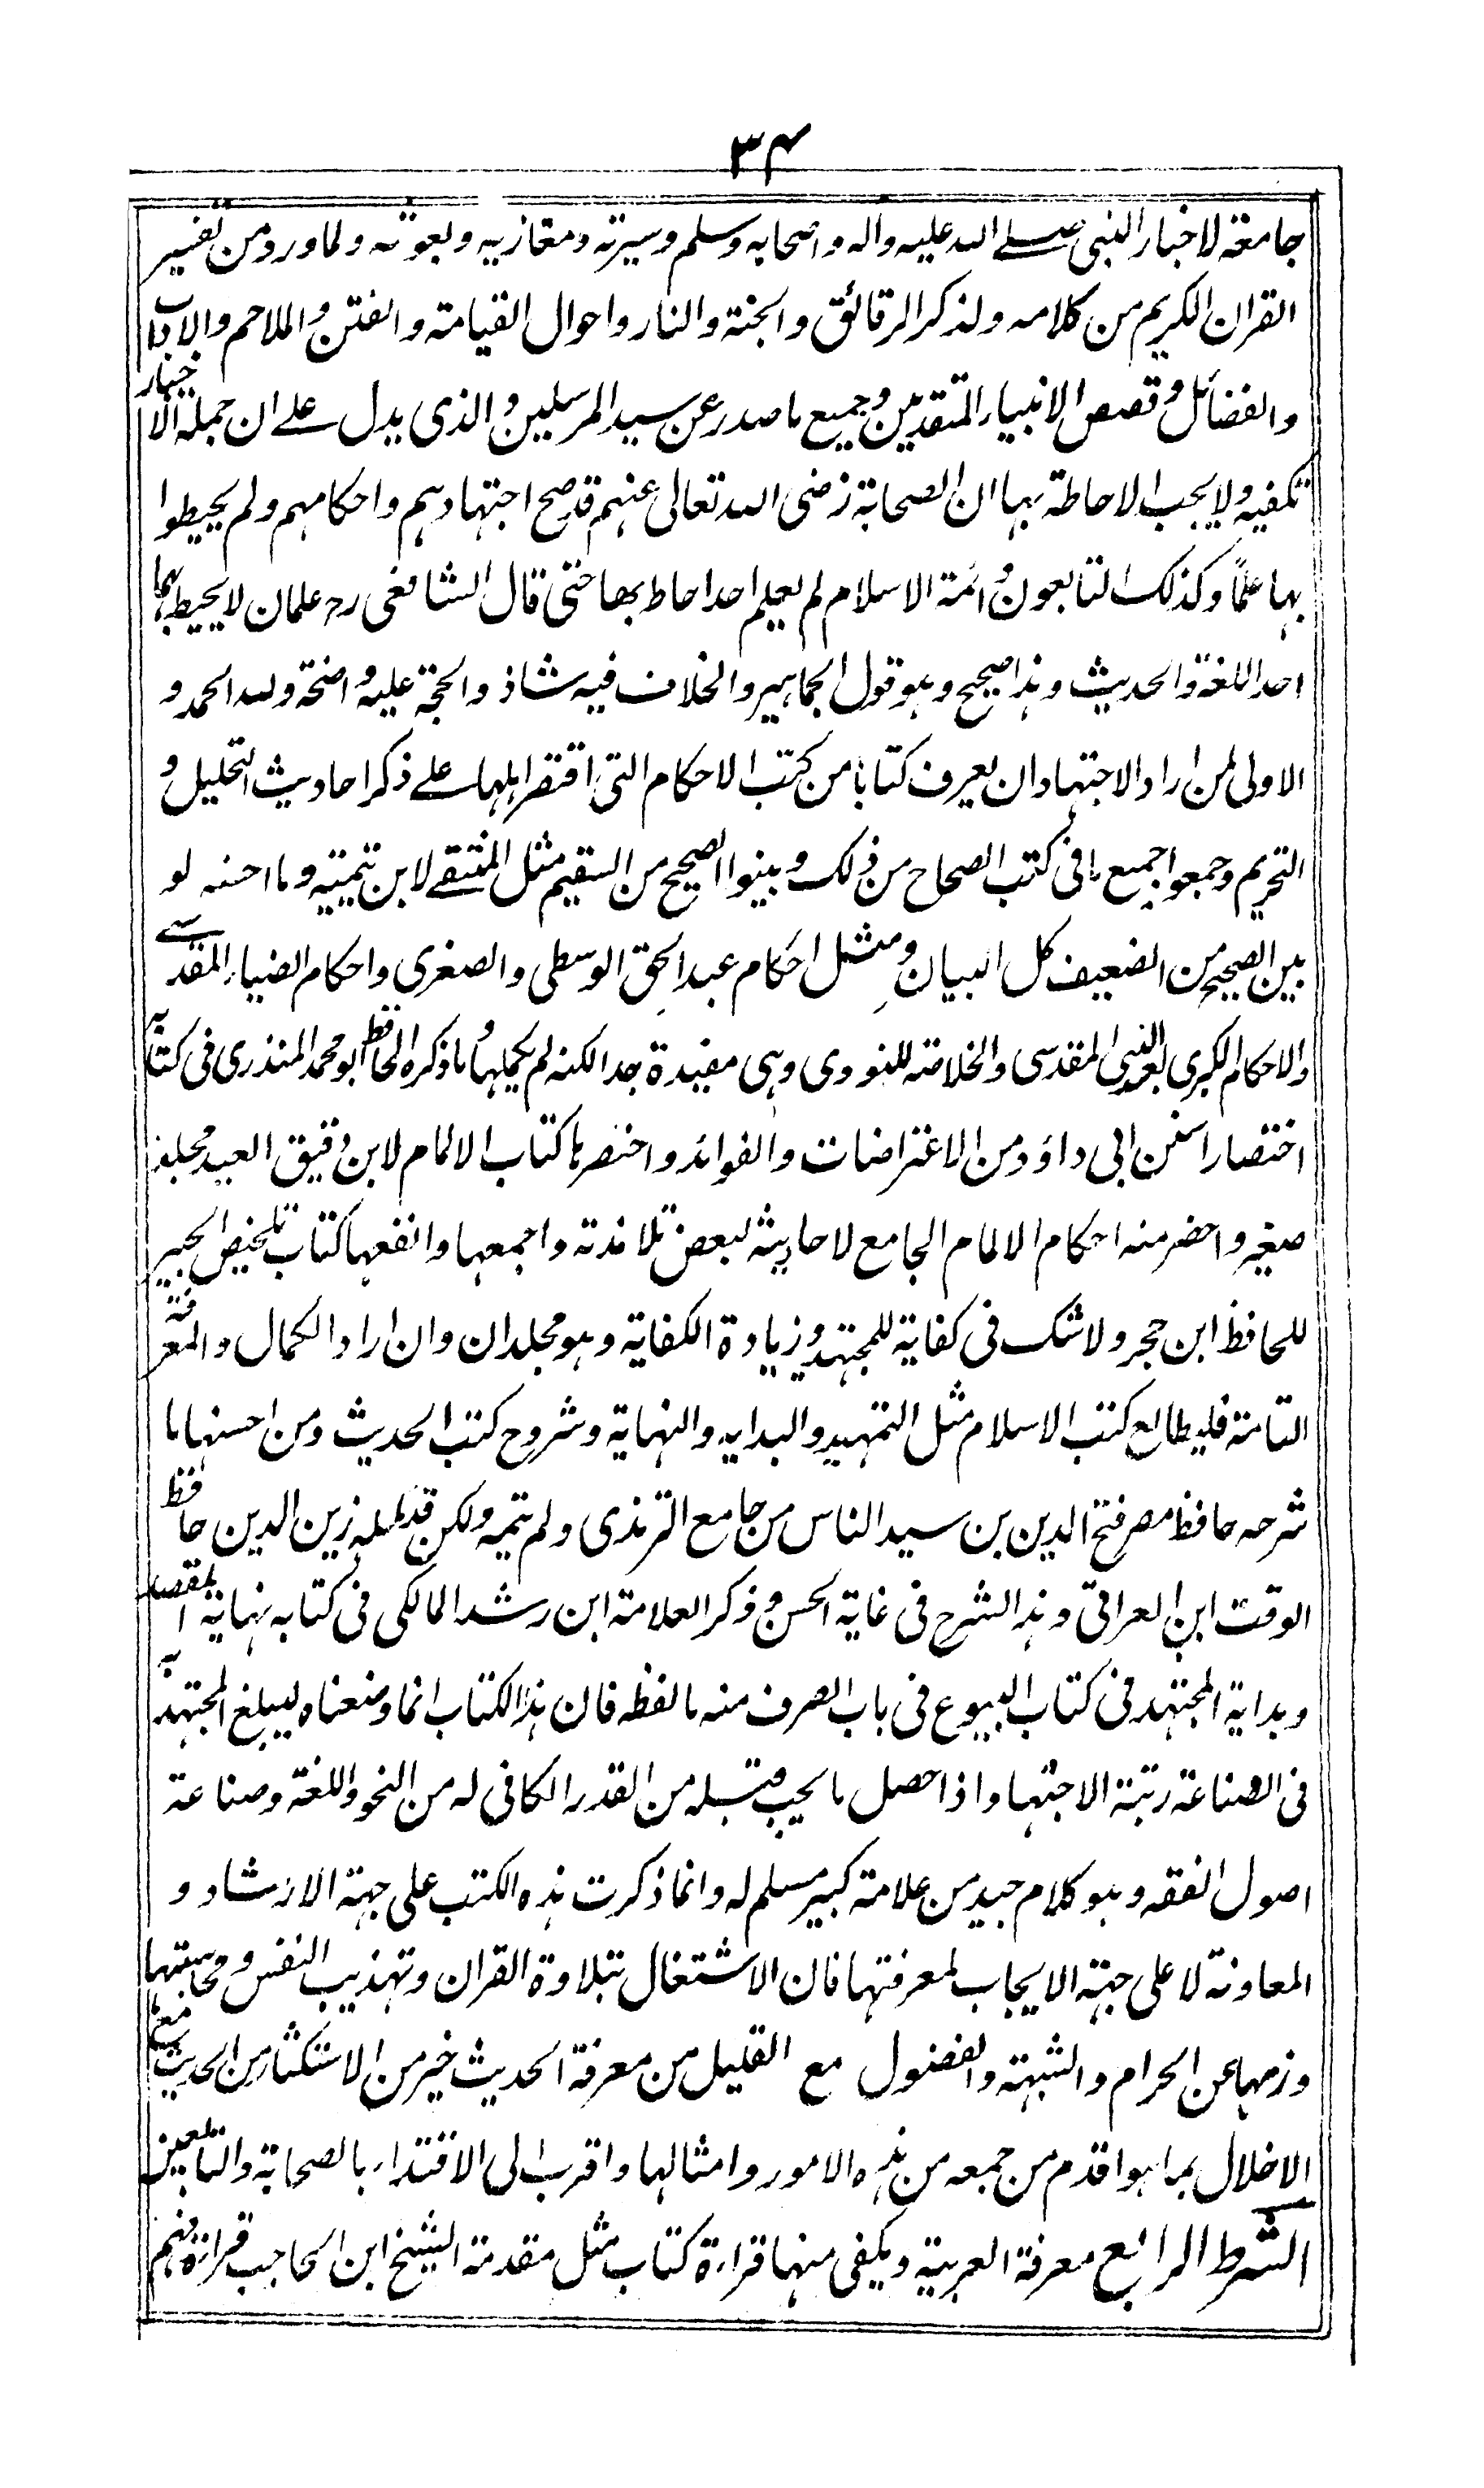 ٣٤
جامعة لاخبار النبى صلے اللہ عليه واله واصحابه وسلم وسيرته ومغازيه وبعوثه ولما ورد من تفسير
القران الكريم من كلامه ولذكر الرقائق والجنة والنار واحوال القيامة والفتن والملاحم والاداب
والفضائل وقصص الانبياء المتقدمين وجميع ما صدر عن سيد المرسلين والذى يدل علے ان جملة الاخبار
تكفيه ولا يجب الاحاطة بها ان الصحابة رضى اللہ تعالى عنهم قد صح اجتهادهم واحكامهم ولم يحيطوا
بها علمًا وكذلك التابعون وائمة الاسلام لم يعلم احد احاط بها حتى قال الشافعى رح علمان لا يحيط بهما
احد اللغة والحديث وهذا صحيح وهو قول الجماهير والخلاف فيه شاذ والحجة عليه واضحة وللہ الحمد و
الاولى لمن اراد الاجتهاد ان يعرف كتابا من كتب الاحكام التى اقتصر اهلها علے ذكر احاديث التحليل و
التحريم وجمعوا جميع ما فى كتب الصحاح من ذلك وبينوا الصحيح من السقيم مثل المنتقے لابن تيمية وما احسنه لو
بين الصحيح من الضعيف كل البيان ومثل احكام عبد الحق الوسطى والصغرى واحكام الضياء المقدسے
والاحكام الكبرى لعبد الغنى المقدسى والخلاصة للنووى وهى مفيدة جدا لكنه لم يكملها وما ذكره الحافظ ابو محمد المنذرى فى كتابه
اختصار السنن ابى داؤد من الاعتراضات والفوائد واخصرها كتاب الالمام لابن دقيق العيد مجلد
صغير واخصر منه احكام الالمام الجامع لاحاديثه لبعض تلامذته واجمعها وانفعها كتاب تلخيص الحبير
للحافظ ابن حجر ولا شك فى كفاية للمجتهد وزيادة الكفاية وهو مجلدان وان اراد الكمال والمعرفة
التامة فليطالع كتب الاسلام مثل التمهيد والبدايه والنهاية وشروح كتب الحديث ومن احسنها ما
شرحه حافظ مصر فتح الدين بن سيد الناس من جامع الترمذى ولم يتمه ولكن قد كمله زين الدين حافظ
الوقت ابن العراقى وهذا الشرح فى غاية الحسن وذكر العلامة ابن رشد المالكى فى كتابه نهاية المقتصد
وبداية المجتهد فى كتاب البيوع فى باب الصرف منه ما لفظه فان هذا الكتاب انما وضعناه ليبلغ المجتهد به
فى الصناعة رتبة الاجتهاد اذا حصل ما يجب قبله من القدر الكافى له من النحو واللغة وصناعة
اصول الفقه وهو كلام جيد من علامة كبير مسلم له وانما ذكرت هذه الكتب على جهة الارشاد و
المعاونة لا على جهة الايجاب لمعرفتها فان الاشتغال بتلاوة القران وتهذيب النفس ومحاسبتها
وزمها عن الحرام والشبهة والفضول مع القليل من معرفة الحديث خير من الاستكثار من الحديث مع
الاخلال بما هو اقدم من جمعه من هذه الامور وامثالها واقرب الى الاقتداء بالصحابة والتابعين
الشرط الرابع معرفة العربية ويكفى منها قراءة كتاب مثل مقدمة الشيخ ابن الحاجب قراءة فهم